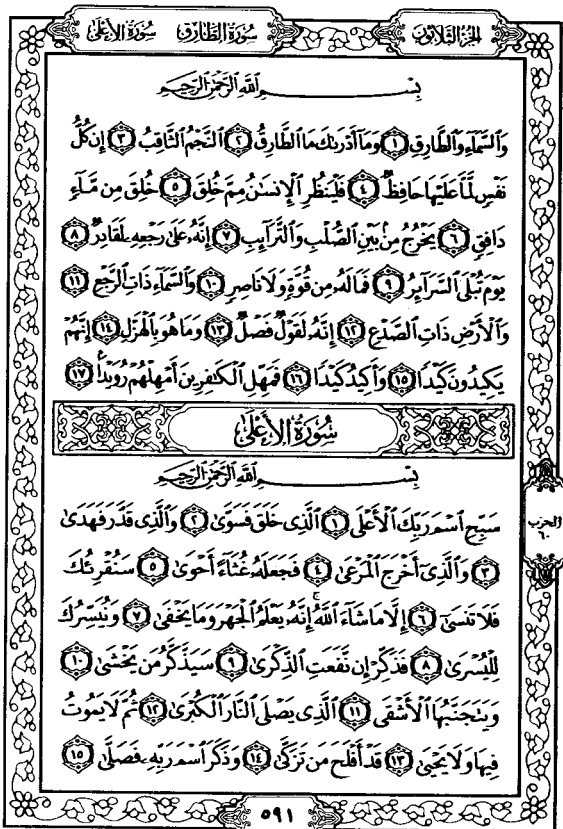 سُورَةُ الطَّارِقِ سُورَةُ الأَعْلَى الجُزْءُ الثَّلَاثُونَ
بِسْمِ ٱللَّهِ ٱلرَّحْمَٰنِ ٱلرَّحِيمِ
وَٱلسَّمَآءِ وَٱلطَّارِقِ ١ وَمَآ أَدْرَىٰكَ مَا ٱلطَّارِقُ ٢ ٱلنَّجْمُ ٱلثَّاقِبُ ٣ إِن كُلُّ
نَفْسٍ لَّمَّا عَلَيْهَا حَافِظٌ ٤ فَلْيَنظُرِ ٱلْإِنسَٰنُ مِمَّ خُلِقَ ٥ خُلِقَ مِن مَّآءٍ
دَافِقٍ ٦ يَخْرُجُ مِنۢ بَيْنِ ٱلصُّلْبِ وَٱلتَّرَآئِبِ ٧ إِنَّهُۥ عَلَىٰ رَجْعِهِۦ لَقَادِرٌ ٨
يَوْمَ تُبْلَى ٱلسَّرَآئِرُ ٩ فَمَا لَهُۥ مِن قُوَّةٍ وَلَا نَاصِرٍ ١٠ وَٱلسَّمَآءِ ذَاتِ ٱلرَّجْعِ ١١
وَٱلْأَرْضِ ذَاتِ ٱلصَّدْعِ ١٢ إِنَّهُۥ لَقَوْلٌ فَصْلٌ ١٣ وَمَا هُوَ بِٱلْهَزْلِ ١٤ إِنَّهُمْ
يَكِيدُونَ كَيْدًا ١٥ وَأَكِيدُ كَيْدًا ١٦ فَمَهِّلِ ٱلْكَٰفِرِينَ أَمْهِلْهُمْ رُوَيْدًۢا ١٧
سُورَةُ الأَعْلَى
بِسْمِ ٱللَّهِ ٱلرَّحْمَٰنِ ٱلرَّحِيمِ
سَبِّحِ ٱسْمَ رَبِّكَ ٱلْأَعْلَى ١ ٱلَّذِى خَلَقَ فَسَوَّىٰ ٢ وَٱلَّذِى قَدَّرَ فَهَدَىٰ
٣ وَٱلَّذِىٓ أَخْرَجَ ٱلْمَرْعَىٰ ٤ فَجَعَلَهُۥ غُثَآءً أَحْوَىٰ ٥ سَنُقْرِئُكَ
فَلَا تَنسَىٰٓ ٦ إِلَّا مَا شَآءَ ٱللَّهُ ۚ إِنَّهُۥ يَعْلَمُ ٱلْجَهْرَ وَمَا يَخْفَىٰ ٧ وَنُيَسِّرُكَ
لِلْيُسْرَىٰ ٨ فَذَكِّرْ إِن نَّفَعَتِ ٱلذِّكْرَىٰ ٩ سَيَذَّكَّرُ مَن يَخْشَىٰ ١٠
وَيَتَجَنَّبُهَا ٱلْأَشْقَى ١١ ٱلَّذِى يَصْلَى ٱلنَّارَ ٱلْكُبْرَىٰ ١٢ ثُمَّ لَا يَمُوتُ
فِيهَا وَلَا يَحْيَىٰ ١٣ قَدْ أَفْلَحَ مَن تَزَكَّىٰ ١٤ وَذَكَرَ ٱسْمَ رَبِّهِۦ فَصَلَّىٰ ١٥
الحزب
٦٠
٥٩١